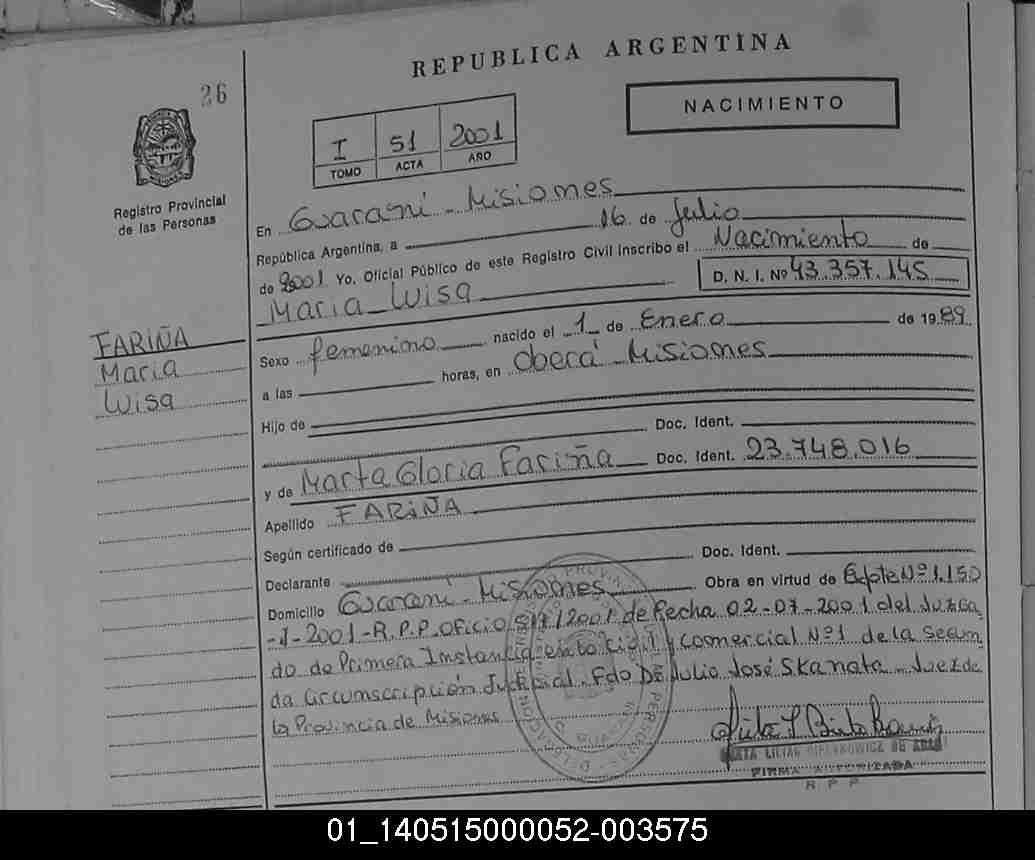 REPUBLICA ARGENTINA
26
NACIMIENTO
I 51 2001
TOMO ACTA AÑO
Registro Provincial
de las Personas
En Guarani - Misiones
República Argentina, a 16 de Julio
de 2001 Yo, Oficial Público de este Registro Civil Inscribo el Nacimiento de
Maria Luisa D. N. I. Nº 43.357.145
FARIÑA
Maria
Luisa
Sexo femenino nacido el 1 de Enero de 1989
a las horas, en Oberá Misiones
Hijo de
Doc. Ident.
y de Marta Gloria Fariña Doc. Ident. 23.748.016
Apellido FARIÑA
Según certificado de
Declarante Doc. Ident.
Domicilio Guarani - Misiones Obra en virtud de Expte Nº 1.150
-J-2001-R.P.P. Oficio /2001 de Fecha 02-07-2001 del Juzga
do de Primera Instancia en lo Civil y Comercial Nº1 de la Segun
da Circunscripción Judicial. Fdo Dr Julio José Skanata - Juez de
la Provincia de Misiones
FIRMA AUTORIZADA
R P P
01_140515000052-003575